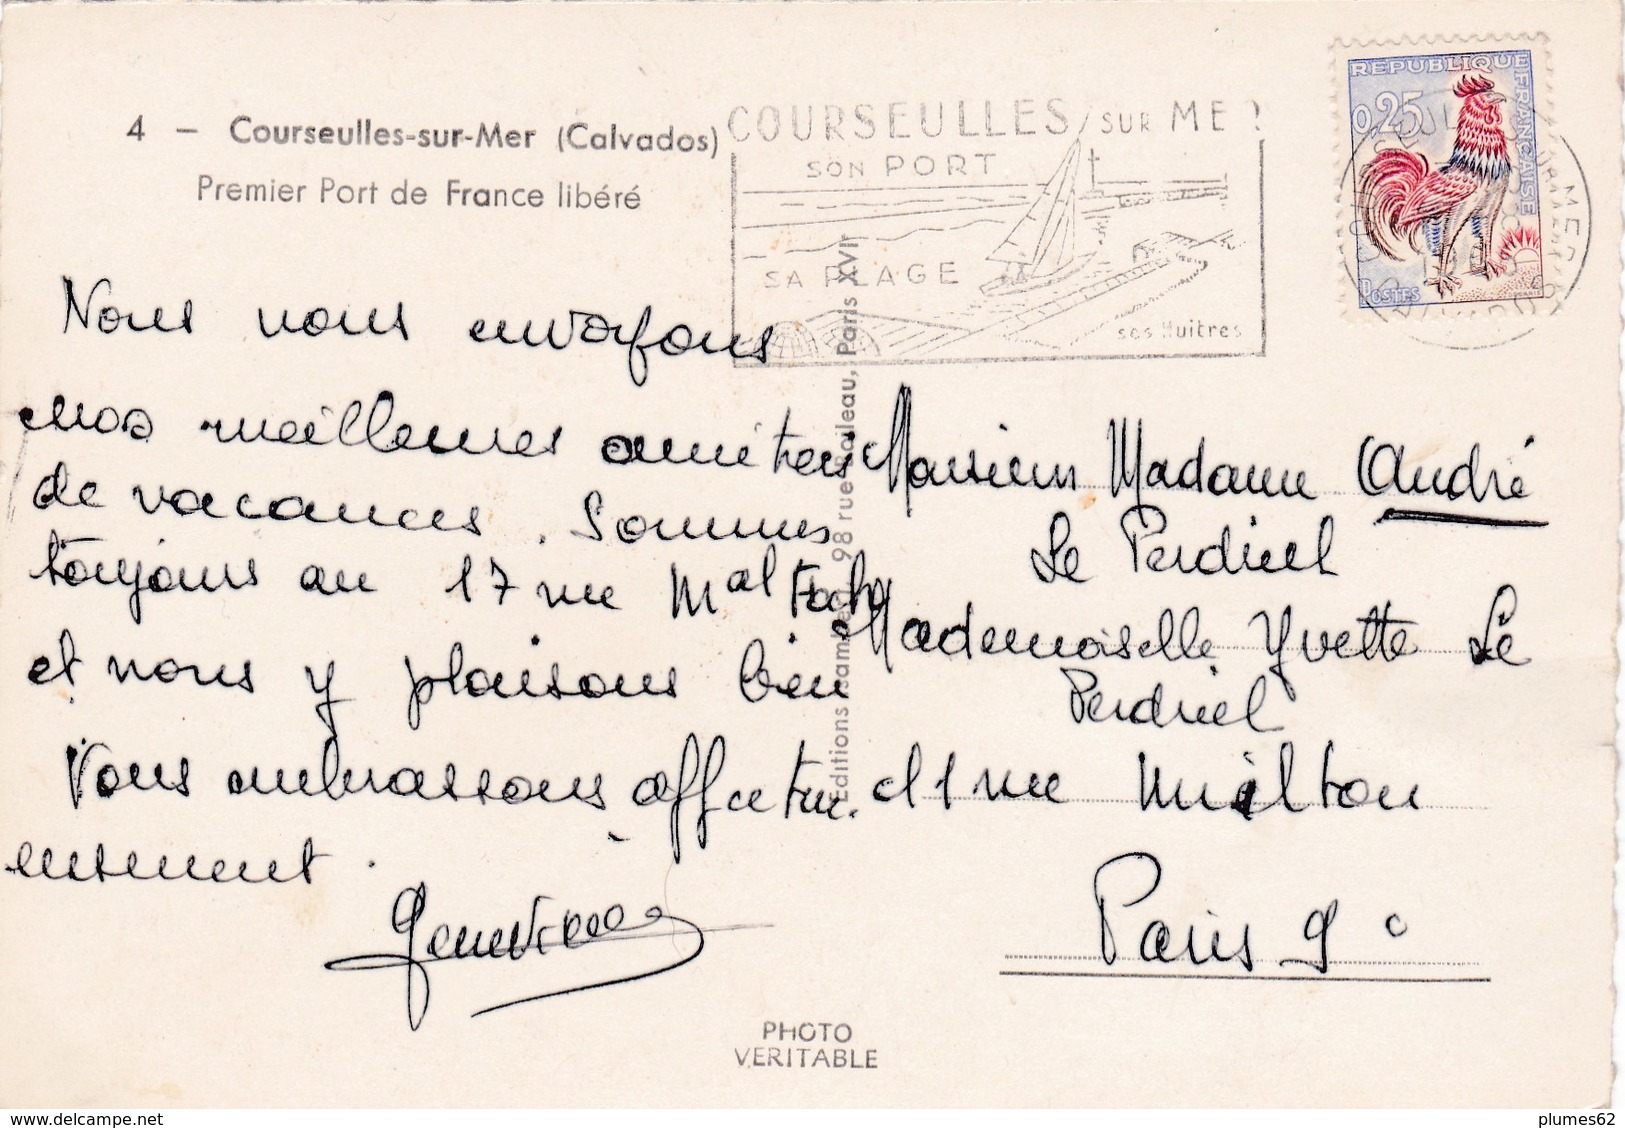 4 – Courseulles-sur-Mer (Calvados)
Premier Port de France libéré
COURSEULLES / SUR ME
SON PORT
SA PLAGE
ses Huitres
REPUBLIQUE
FRANÇAISE
0,25
POSTES
Nous vous envoyons
nos meilleures amitiés
de vacances. Sommes
toujours au 17 rue Mal Foch
et nous y plaisons bien
Vous embrassons affectueu-
eusement.
Geneviève
Editions 98 rue Boileau, Paris XVIe
Monsieur Madame André
Le Perdriel
Mademoiselle Yvette Le
Perdriel
rue Milton
Paris 9e
PHOTO
VERITABLE
www.delcampe.net
plumes62